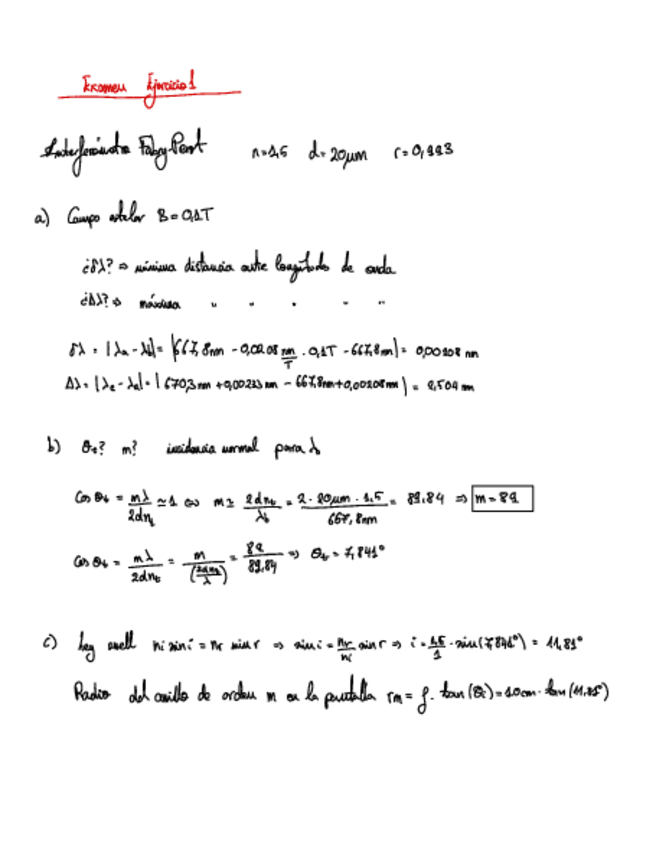 Examen Ejercicio 1
Interferómetro Fabry-Perot n=1,5 d=20μm r=0,993
a) Campo estelar B=0,1T
¿δλ? ⇒ mínima distancia entre longitudes de onda
¿Δλ? ⇒ máxima " " " " "
δλ = |λa - λb| = |667,8nm - 0,0208 nm/T · 0,1T - 667,8nm| = 0,00208 nm
Δλ = |λe - λa| = |670,3nm + 0,00233nm - 667,8nm + 0,00208nm| = 2,504 nm
b) θt? m? incidencia normal para λ
Cos θt = mλ/2dnt ≃ 1 ⇔ m ≃ 2dnt/λb = 2·20μm·1,5/667,8nm = 89.84 ⇒ m=89
Cos θt = mλ/2dnt = m/(2dnt/λ) = 89/89.84 ⇒ θt = 7,841°
c) Ley snell ni sin i = nr sin r ⇒ sin i = nr/ni sin r ⇒ i = 1.5/1 · sin(7,841°) = 11,81°
Radio del anillo de orden m en la pantalla rm = f · tan(θi) = 10cm · tan(11,81°)